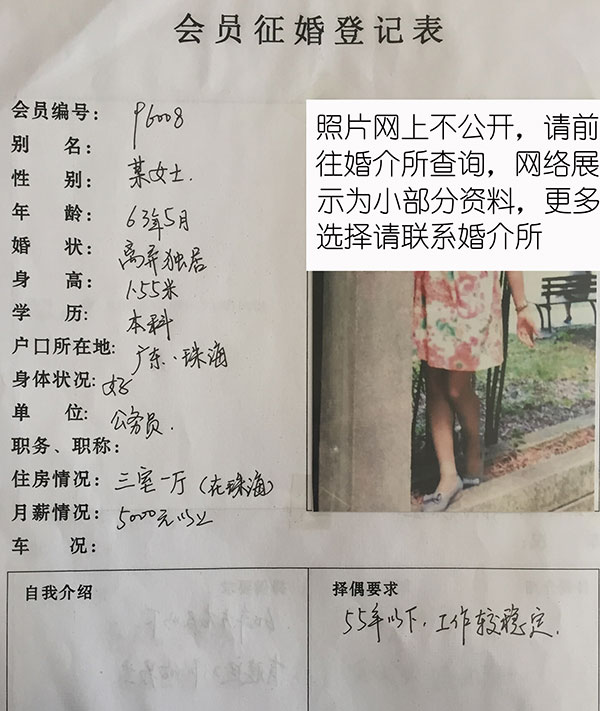 会员征婚登记表
会员编号： P6008
别 名：
性 别： 某女士.
年 龄： 63年5月
婚 状： 离异独居
身 高： 1.55米
学 历： 本科
户口所在地: 广东·珠海
身体状况: 好
单 位: 公务员.
职务、职称：
住房情况： 三室一厅（在珠海）
月薪情况： 5000元以上
车 况：
照片网上不公开，请前
往婚介所查询，网络展
示为小部分资料，更多
选择请联系婚介所
自我介绍
择偶要求
55年以下，工作较稳定.